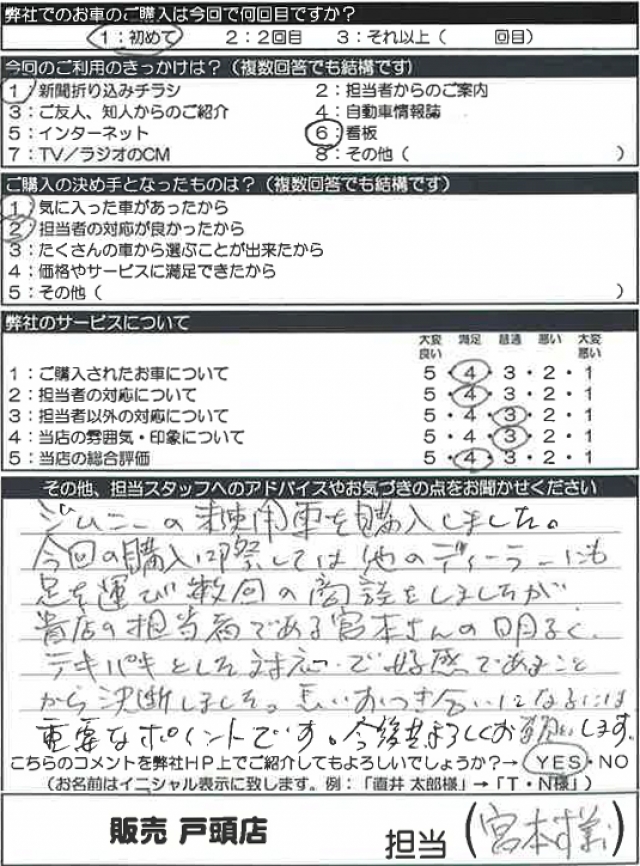 弊社でのお車のご購入は今回で何回目ですか？
1：初めて 2：2回目 3：それ以上（ 回目）
今回のご利用のきっかけは？（複数回答でも結構です）
1：新聞折り込みチラシ 2：担当者からのご案内
3：ご友人、知人からのご紹介 4：自動車情報誌
5：インターネット 6：看板
7：TV／ラジオのCM 8：その他（ ）
ご購入の決め手となったものは？（複数回答でも結構です）
1：気に入った車があったから
2：担当者の対応が良かったから
3：たくさんの車から選ぶことが出来たから
4：価格やサービスに満足できたから
5：その他（ ）
弊社のサービスについて
大変良い 満足 普通 悪い 大変悪い
1：ご購入されたお車について 5・4・3・2・1
2：担当者の対応について 5・4・3・2・1
3：担当者以外の対応について 5・4・3・2・1
4：当店の雰囲気・印象について 5・4・3・2・1
5：当店の総合評価 5・4・3・2・1
その他、担当スタッフへのアドバイスやお気づきの点をお聞かせください
ジムニーの未使用車を購入しました。
今回の購入に際しては他のディーラーにも
足を運び数回の商談をしましたが
貴店の担当者である宮本さんの明るく、
テキパキとした対応で好感であること
から決断しました。長いおつき合いになるには
重要なポイントです。今後共よろしくお願いします。
こちらのコメントを弊社HP上でご紹介してもよろしいでしょうか？→ YES・NO
（お名前はイニシャル表示に致します。例：「直井 太郎様」→「T・N様」）
販売 戸頭店 担当（宮本様）